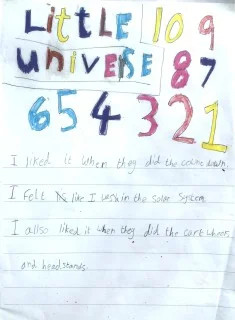 LittLE 10 9
UNIVERSE 8 7
6 5 4 3 2 1
I liked it when they did the count down.
I felt like I was in the solar System
I allso liked it when they did the cart wheels
and headstands.